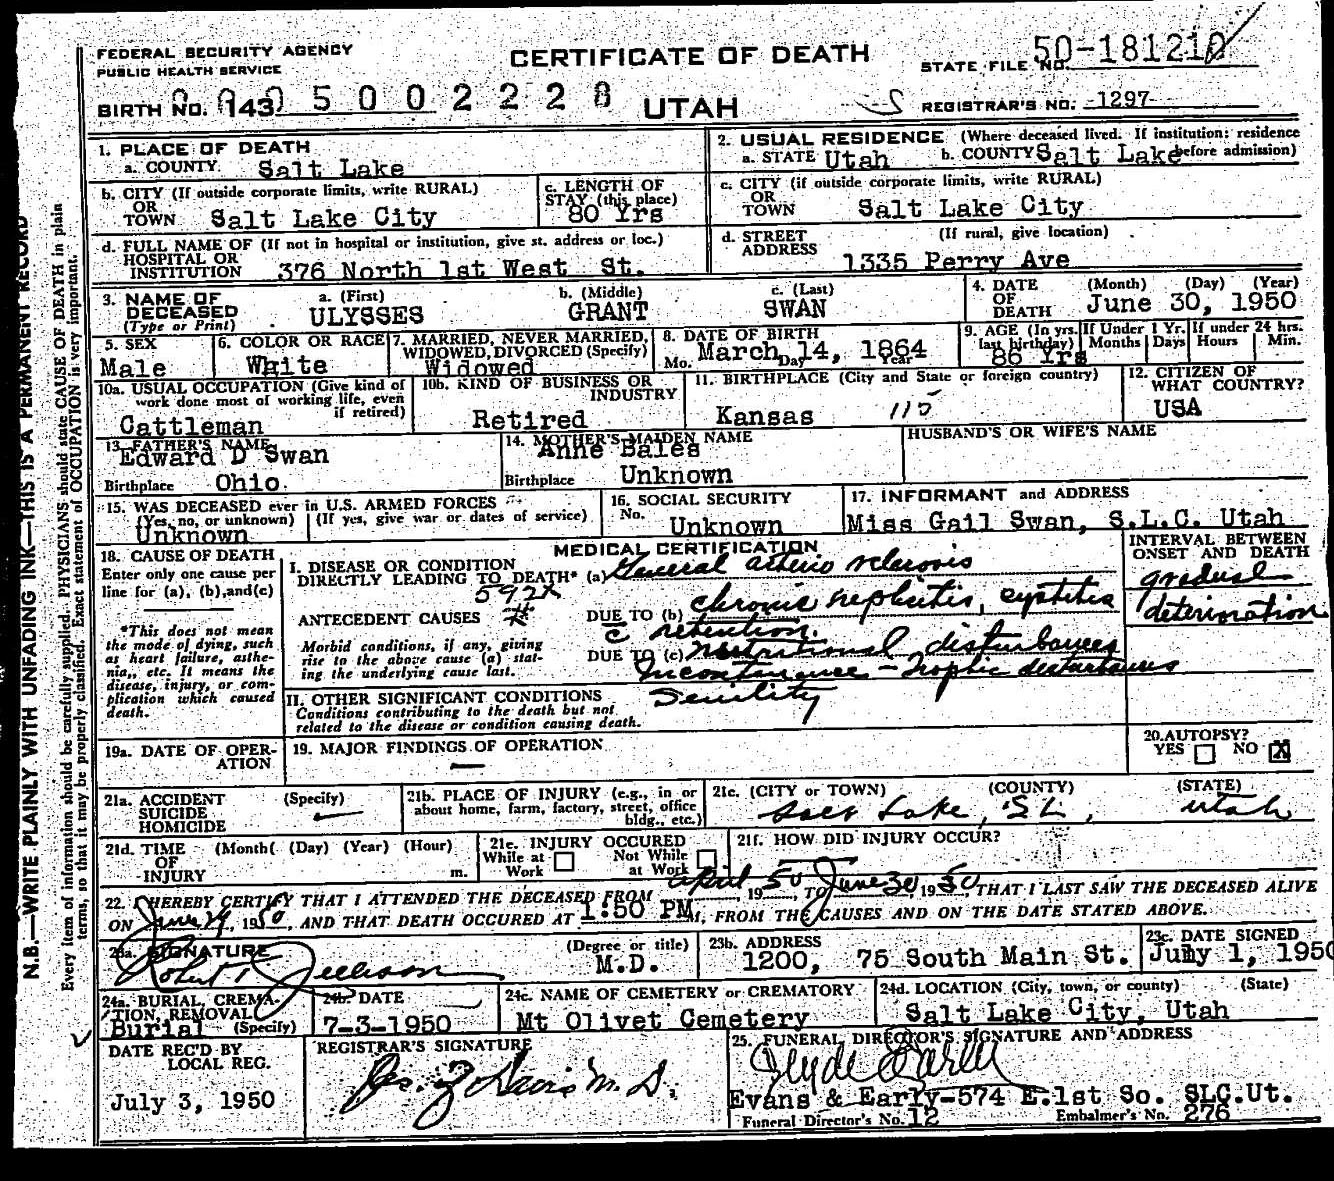 FEDERAL SECURITY AGENCY
PUBLIC HEALTH SERVICE
CERTIFICATE OF DEATH
STATE FILE NO. 50-181210
BIRTH NO. 143 5002228
UTAH
REGISTRAR'S NO. 1297
1. PLACE OF DEATH
a. COUNTY Salt Lake
2. USUAL RESIDENCE (Where deceased lived. If institution: residence before admission)
a. STATE Utah b. COUNTY Salt Lake
b. CITY (If outside corporate limits, write RURAL)
OR
TOWN Salt Lake City
c. LENGTH OF
STAY (this place)
80 Yrs
c. CITY (if outside corporate limits, write RURAL)
OR
TOWN Salt Lake City
d. FULL NAME OF (If not in hospital or institution, give st. address or loc.)
HOSPITAL OR
INSTITUTION 376 North 1st West St.
d. STREET (If rural, give location)
ADDRESS 1335 Perry Ave
3. NAME OF
DECEASED
(Type or Print)
a. (First) b. (Middle) c. (Last)
ULYSSES GRANT SWAN
4. DATE (Month) (Day) (Year)
OF
DEATH June 30, 1950
5. SEX
Male
6. COLOR OR RACE
White
7. MARRIED, NEVER MARRIED,
WIDOWED, DIVORCED (Specify)
Widowed
8. DATE OF BIRTH
Mo. March Day 14, 1864 Year
9. AGE (In yrs. last birthday)
86 Yrs
If Under 1 Yr.
Months Days
If under 24 hrs.
Hours Min.
10a. USUAL OCCUPATION (Give kind of
work done most of working life, even
if retired)
Cattleman
10b. KIND OF BUSINESS OR
INDUSTRY
Retired
11. BIRTHPLACE (City and State or foreign country)
Kansas 115
12. CITIZEN OF
WHAT COUNTRY?
USA
13. FATHER'S NAME
Edward D Swan
Birthplace Ohio.
14. MOTHER'S MAIDEN NAME
Anne Bales
Birthplace Unknown
HUSBAND'S OR WIFE'S NAME
15. WAS DECEASED ever in U.S. ARMED FORCES
(Yes, no, or unknown) (If yes, give war or dates of service)
Unknown
16. SOCIAL SECURITY
No. Unknown
17. INFORMANT and ADDRESS
Miss Gail Swan, S.L.C. Utah
18. CAUSE OF DEATH
Enter only one cause per
line for (a), (b), and (c)
*This does not mean
the mode of dying, such
as heart failure, asthe-
nia,, etc. It means the
disease, injury, or com-
plication which caused
death.
MEDICAL CERTIFICATION
I. DISEASE OR CONDITION
DIRECTLY LEADING TO DEATH* (a) General arterio sclerosis
592X
ANTECEDENT CAUSES DUE TO (b) chronic nephritis, cystitis
c retention.
Morbid conditions, if any, giving
rise to the above cause (a) stat-
ing the underlying cause last.
DUE TO (c) nutritional disturbances
Incontinence - trophic disturbances
II. OTHER SIGNIFICANT CONDITIONS Senility
Conditions contributing to the death but not
related to the disease or condition causing death.
INTERVAL BETWEEN
ONSET AND DEATH
gradual
deterioration
19a. DATE OF OPER-
ATION
19. MAJOR FINDINGS OF OPERATION
—
20. AUTOPSY?
YES NO X
21a. ACCIDENT (Specify)
SUICIDE —
HOMICIDE
21b. PLACE OF INJURY (e.g., in or
about home, farm, factory, street, office
bldg., etc.)
21c. (CITY or TOWN) (COUNTY) (STATE)
Salt Lake, SL, Utah
21d. TIME (Month( (Day) (Year) (Hour)
OF
INJURY m.
21e. INJURY OCCURED
While at Work Not While at Work
21f. HOW DID INJURY OCCUR?
22. I HEREBY CERTIFY THAT I ATTENDED THE DECEASED FROM April, 1950, TO June 30, 1950 THAT I LAST SAW THE DECEASED ALIVE
ON June 29, 1950, AND THAT DEATH OCCURED AT 1:50 PM M, FROM THE CAUSES AND ON THE DATE STATED ABOVE.
23a. SIGNATURE (Degree or title)
Robert T M.D.
23b. ADDRESS
1200, 75 South Main St.
23c. DATE SIGNED
July 1, 1950
24a. BURIAL, CREMA-
TION, REMOVAL
Burial (Specify)
24b. DATE
7-3-1950
24c. NAME OF CEMETERY or CREMATORY
Mt Olivet Cemetery
24d. LOCATION (City, town, or county) (State)
Salt Lake City, Utah
DATE REC'D BY
LOCAL REG.
July 3, 1950
REGISTRAR'S SIGNATURE
M.D.
25. FUNERAL DIRECTOR'S SIGNATURE AND ADDRESS
Clyde Early
Evans & Early-574 E.1st So. SLC.Ut.
Funeral Director's No. 12 Embalmer's No. 276
N.B.—WRITE PLAINLY WITH UNFADING INK—THIS IS A PERMANENT RECORD
Every item of information should be carefully supplied. PHYSICIANS should state CAUSE OF DEATH in plain
terms, so that it may be properly classified. Exact statement of OCCUPATION is very important.